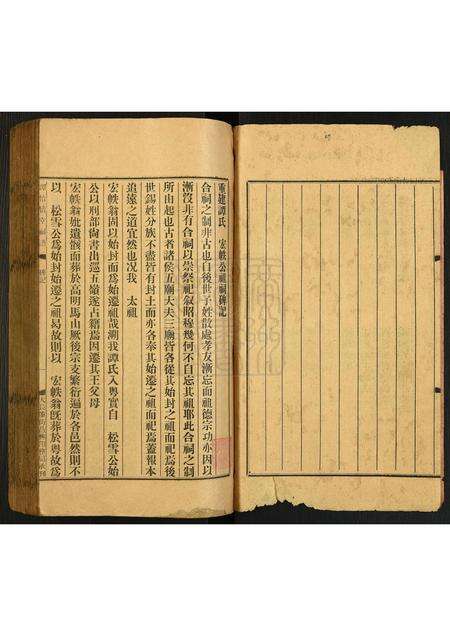 重建譚氏 宏帙公祖祠碑記
合祠之制非古也自後世子姓散處孝友漸忘而祖德宗功亦因以
漸沒非有合祠以崇祭祀敘昭穆幾何不自忘其祖耶此合祠之制
所由起也古者諸侯五廟大夫三廟皆各從其始封之祖而祀焉後
世錫姓分族不盡皆有封土而亦各奉其始遷之祖而祀焉蓋報本
追遠之道宜然也况我 太祖
宏帙翁固以始封而為始遷祖哉溯我譚氏入粵實自 松雪公始
公以刑部尚書出巡五嶺遂占籍焉因遷其王父母
宏帙翁妣遺骸而葬於高明馬山厥後宗支繁衍遍於各邑然則不
以 松雪公為始封始遷之祖曷故則以 宏帙翁既葬於粵故為